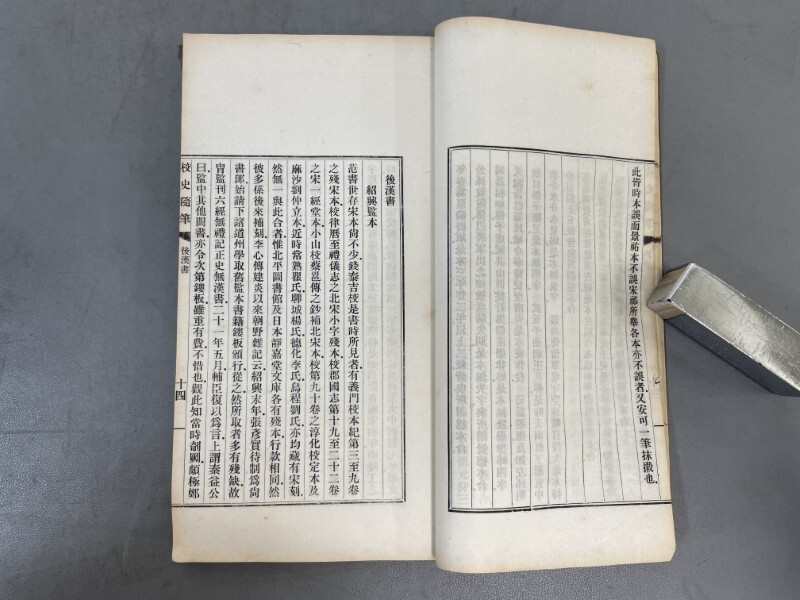 此皆時本誤而景祐本不誤宋祁所舉各本亦不誤者又安可一筆抹撥也
後漢書
紹興監本
范書世存宋本尙不少錢泰吉校是書時所見者有義門校本紀第三至九卷
之殘宋本校律曆至禮儀志之北宋小字殘本校郡國志第十九至二十二卷
之宋一經堂本小山校蔡邕傳之鈔補北宋本校第九十卷之淳化校定本及
麻沙劉仲立本近時常熟瞿氏聊城楊氏德化李氏烏程劉氏亦均藏有宋刻
然無一與此合者惟北平圖書館及日本靜嘉堂文庫各有殘本行款相同然
彼多係後來補刻李心傳建炎以來朝野雜記云紹興末年張彥實待制爲尙
書郎始請下諸道州學取舊監本書籍鏤板頒行從之然所取者多有殘缺故
胄監刊六經無禮記正史無漢書二十一年五月輔臣復以爲言上謂秦益公
曰監中其他闕書亦令次第鏤板雖重有費不惜也觀此知當時剞劂頗極鄭
校史隨筆
後漢書
十四